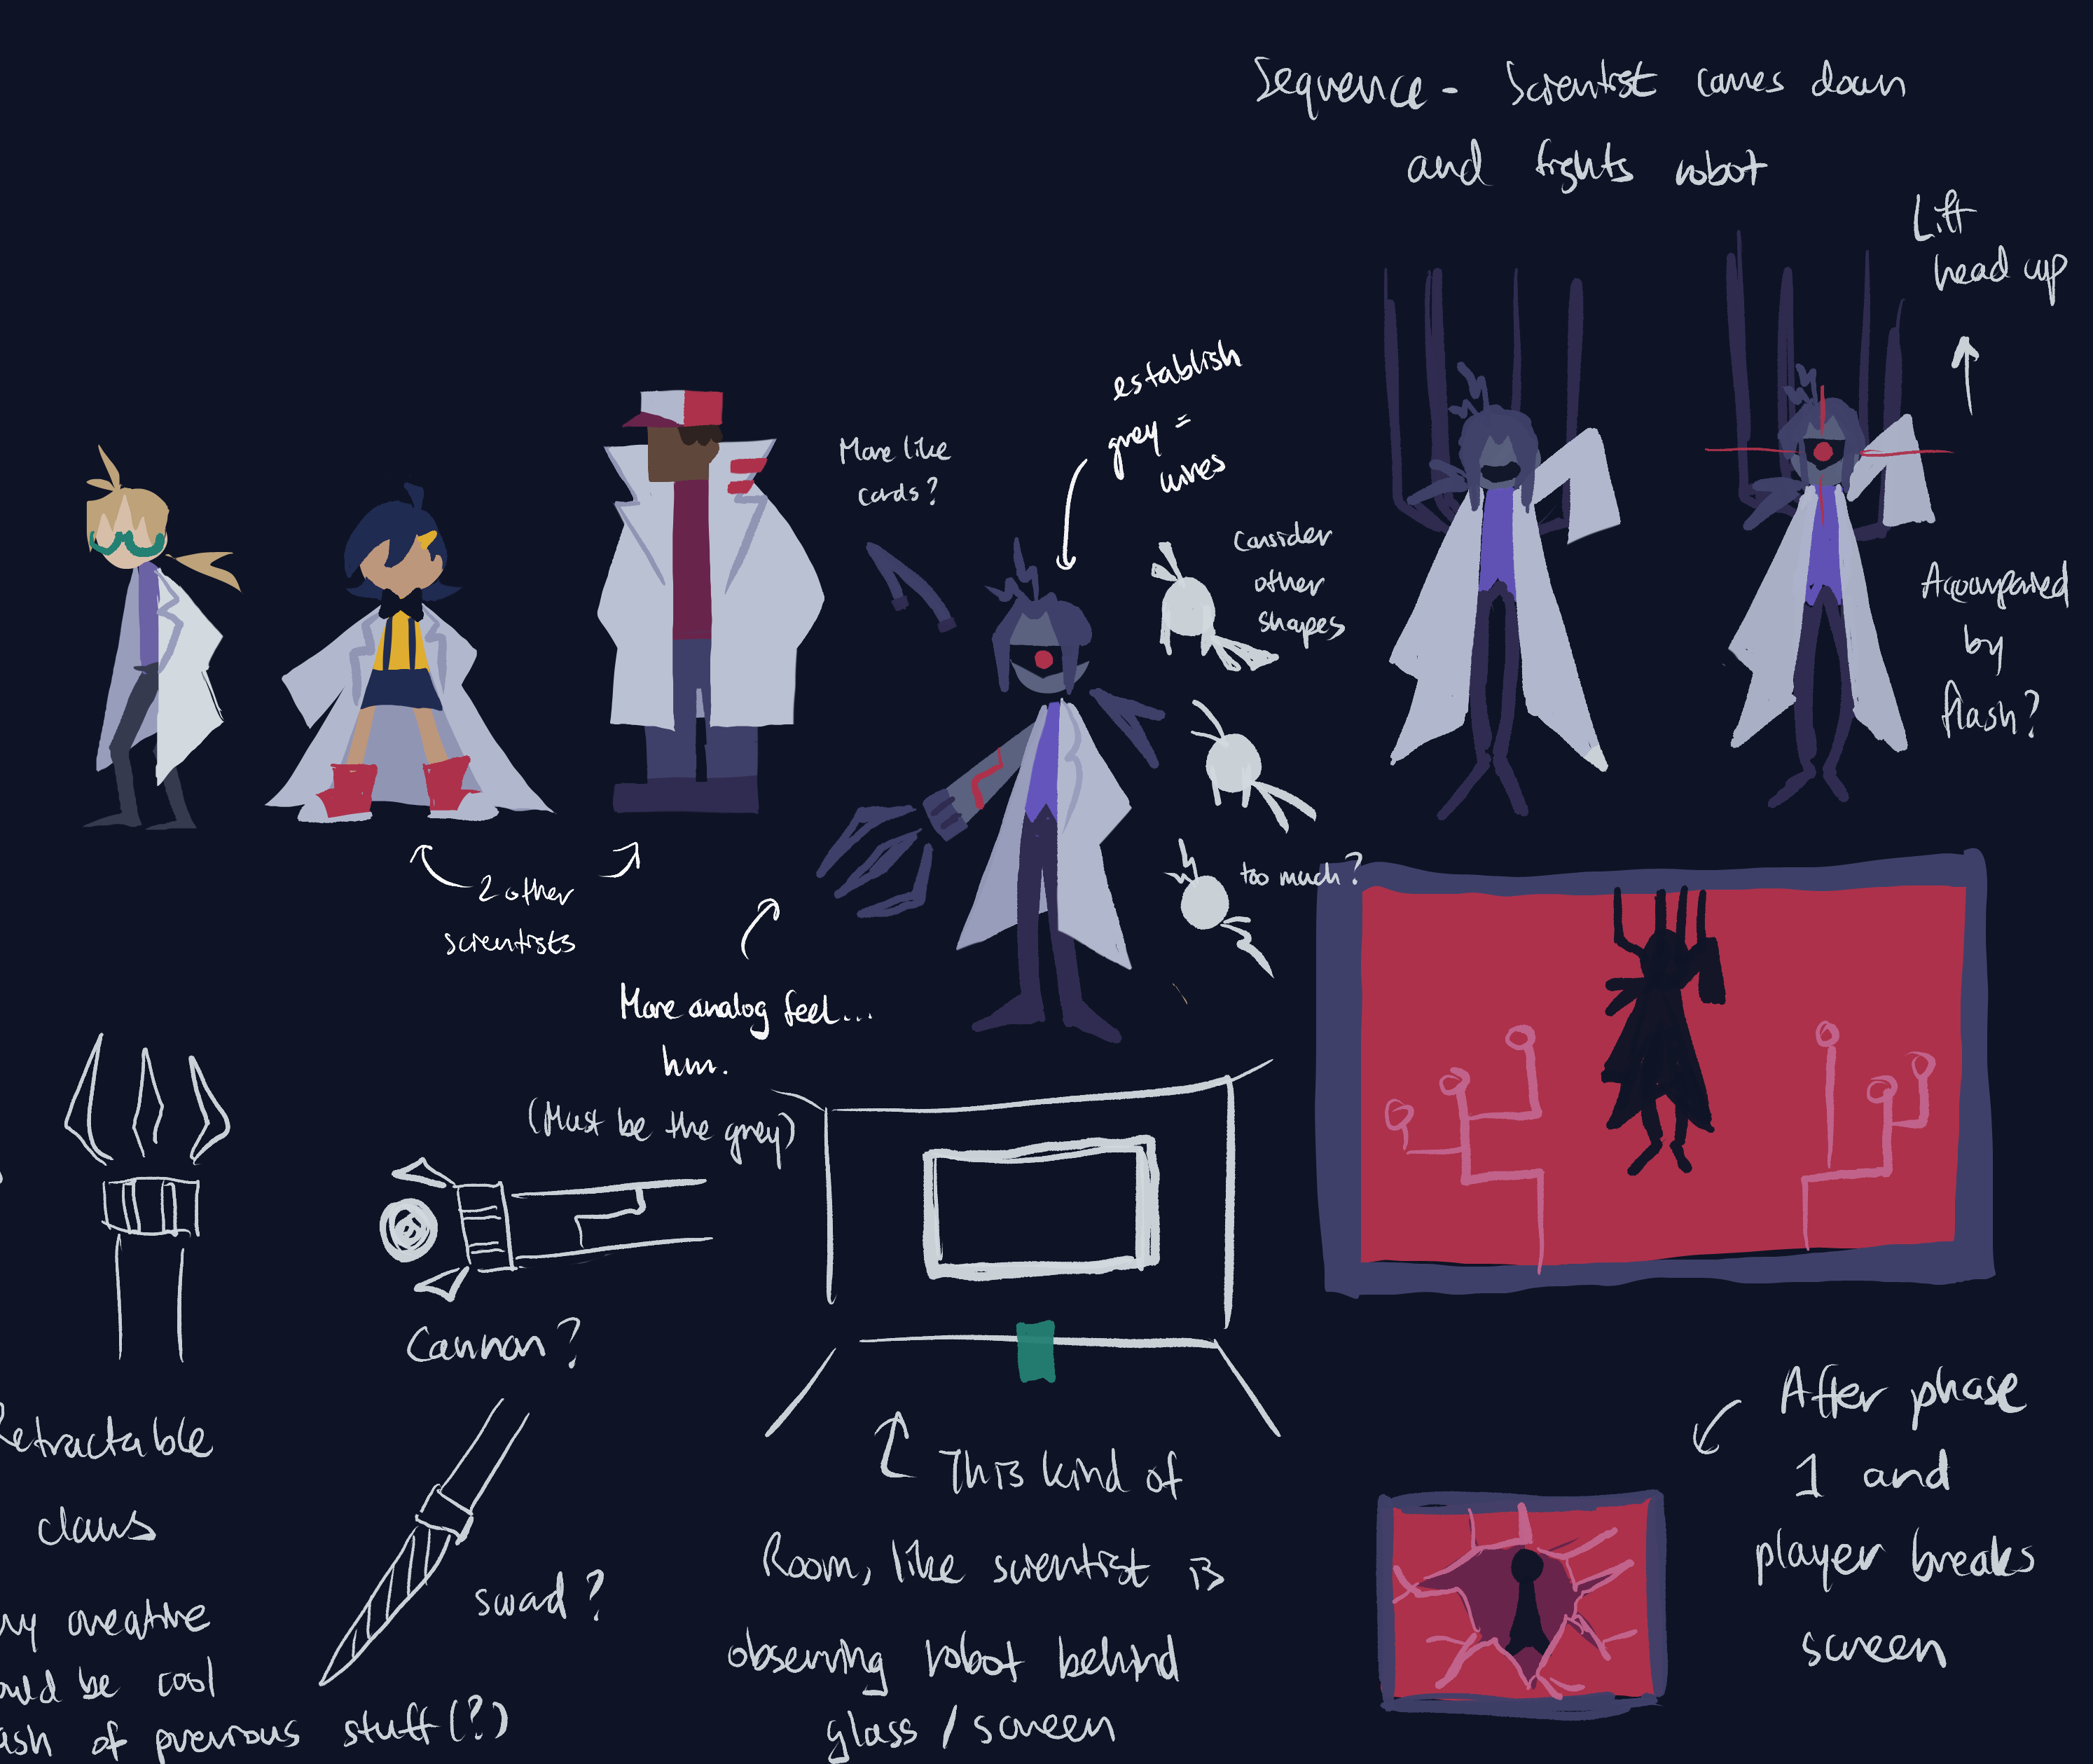 Sequence - Scientist comes down
and fights robot
Lift
head up
establish
grey =
wires
More like
cords?
Consider
other
shapes
Accompanied
by
flash?
too much?
2 other
scientists
More analog feel...
hm.
(Must be the grey)
Cannon?
Retractable
claws
sword?
creative
be cool
of previous stuff(?)
This kind of
Room, like scientist is
observing robot behind
glass / screen
After phase
1 and
player breaks
screen